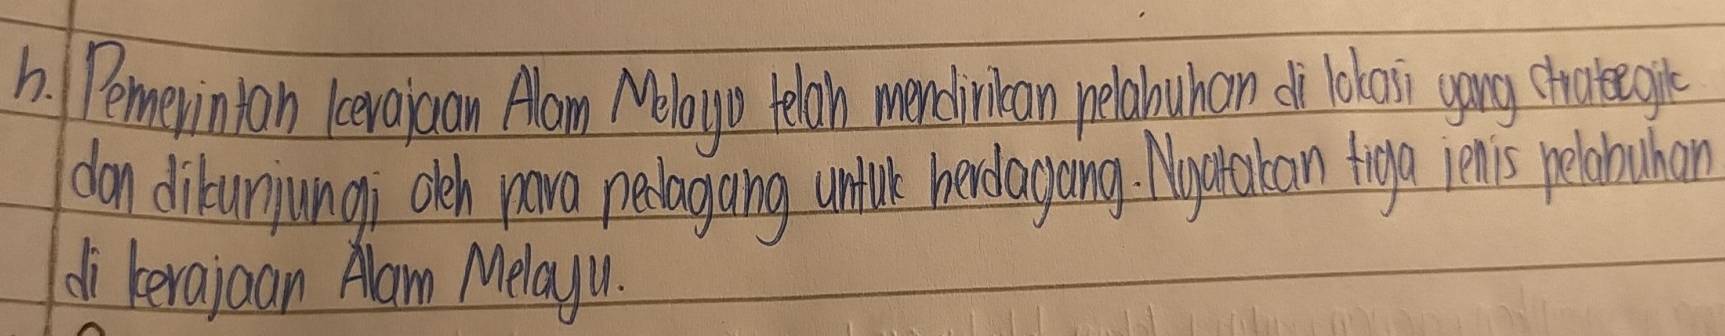 h. Pemerintah kerajaan Alam Melayu telah mendirikan pelabuhan di lokasi yang strateegik
dan dikunjungi oleh para pedagang untuk berdagang. Nyatakan tiga jenis pelabuhan
di kerajaan Alam Melayu.